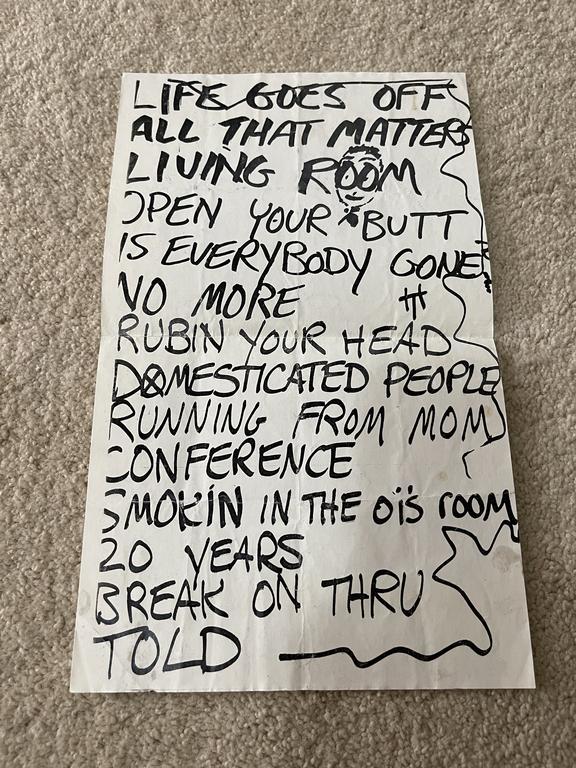 LIFE GOES OFF
ALL THAT MATTERS
LIVING ROOM
OPEN YOUR BUTT
IS EVERYBODY GONE?
NO MORE
RUBIN YOUR HEAD
DOMESTICATED PEOPLE
RUNNING FROM MOM
CONFERENCE
SMOKIN IN THE OiS ROOM
20 YEARS
BREAK ON THRU
TOLD